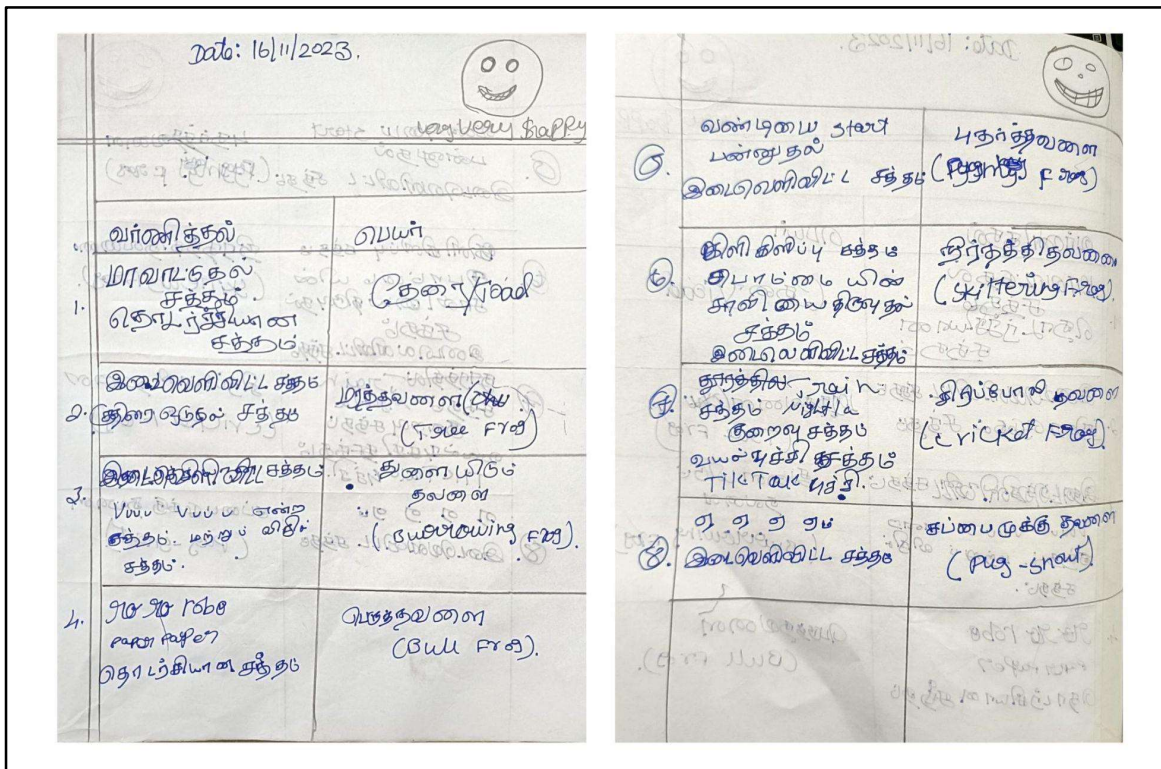 Date: 16/11/2023.
very very happy
வர்ணித்தல்
பெயர்
1.
மாவாட்டுதல்
சத்தம்.
தொடர்ச்சியான
சத்தம்
தேரை/Toad
இடைவெளிவிட்ட சத்தம்
2. குதிரை ஓடுதல் சத்தம்
மரத்தவளை
(Tree Frog)
3.
இடைவெளிவிட்ட சத்தம்
என்ற
சத்தம். மற்றும் விசில்
சத்தம்.
துளையிடும்
தவளை
(Burrowing Frog).
4.
robe
paper
தொடர்சியான சத்தம்
பெருந்தவளை
(Bull Frog).
5.
வண்டியை start
பன்னுதல்
இடைவெளிவிட்ட சத்தம்
புதர்த்தவளை
Frog)
6.
கிளிகிளிப்பு சத்தம்
பொம்மை யின்
சாவியை திருவுதல்
சத்தம்
இடைவெளிவிட்ட சத்தம்
(Skittering Frog).
7.
தூரத்தில் Train
சத்தம்
குறைவு சத்தம்
வயல்பூச்சி சத்தம்
TikTuk பூச்சி.
தவளை
(Cricket Frog).
8.
ஏ ஏ ஏ ஏம்
இடைவெளிவிட்ட சத்தம்
சப்பைமூக்கு தவளை
(Pug-snout)